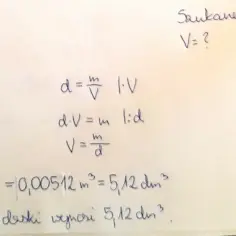 Szukane
V = ?
d = m/V |·V
d·V = m |:d
V = m/d
= 0,00512 m³ = 5,12 dm³
deski wynosi 5,12 dm³.